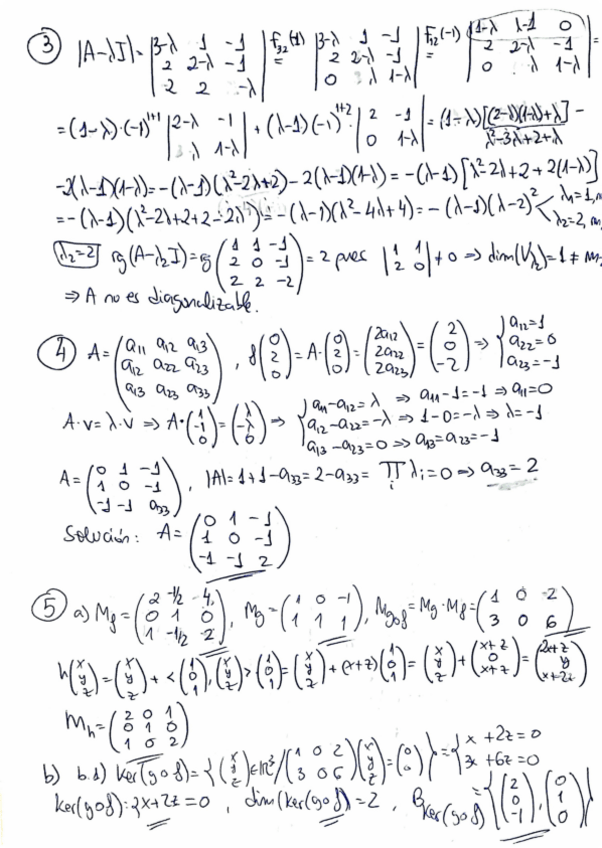 ③ |A-λI| = |3-λ 1 -1; 2 2-λ -1; 2 2 -λ| f₃₂(-1) = |3-λ 1 -1; 2 2-λ -1; 0 λ 1-λ| F₁₂(-1) = |1-λ λ-1 0; 2 2-λ -1; 0 λ 1-λ| =
= (1-λ)·(-1)¹⁺¹ |2-λ -1; λ 1-λ| + (λ-1)(-1)¹⁺² · |2 -1; 0 1-λ| = (1-λ)[(2-λ)(1-λ)+λ] -
λ²-3λ+2+λ
-2(λ-1)(1-λ) = -(λ-1)(λ²-2λ+2) - 2(λ-1)(1-λ) = -(λ-1)[λ²-2λ+2+2(1-λ)]
= -(λ-1)(λ²-2λ+2+2-2λ) = -(λ-1)(λ²-4λ+4) = -(λ-1)(λ-2)² < λ₁=1, λ₂=2,
λ₂=2 rg(A-λ₂I) = rg (1 1 -1; 2 0 -1; 2 2 -2) = 2 pues |1 1; 2 0| ≠ 0 ⇒ dim(V₂)=1 ≠ m₂
⇒ A no es diagonalizable.
④ A = (a₁₁ a₁₂ a₁₃; a₁₂ a₂₂ a₂₃; a₁₃ a₂₃ a₃₃), f(0; 2; 0) = A·(0; 2; 0) = (2a₁₂; 2a₂₂; 2a₂₃) = (2; 0; -2) ⇒ {a₁₂=1; a₂₂=0; a₂₃=-1
A·v = λ·v ⇒ A·(1; -1; 0) = (λ; -λ; 0) ⇒ {a₁₁-a₁₂=λ ⇒ a₁₁-1=-1 ⇒ a₁₁=0; a₁₂-a₂₂=-λ ⇒ 1-0=-λ ⇒ λ=-1; a₁₃-a₂₃=0 ⇒ a₁₃=a₂₃=-1
A = (0 1 -1; 1 0 -1; -1 -1 a₃₃), |A| = 1+1-a₃₃ = 2-a₃₃ = ∏ᵢ λᵢ = 0 ⇒ a₃₃ = 2
Solución: A = (0 1 -1; 1 0 -1; -1 -1 2)
⑤ a) Mf = (2 -1/2 -4; 0 1 0; 1 -1/2 -2), Mg = (1 0 -1; 1 1 1), Mgof = Mg·Mf = (1 0 -2; 3 0 6)
h(x; y; z) = (x; y; z) + <(1; 0; 1), (x; y; z)> (1; 0; 1) = (x; y; z) + (x+z)(1; 0; 1) = (x; y; z) + (x+z; 0; x+z) = (2x+z; y; x+2z)
Mh = (2 0 1; 0 1 0; 1 0 2)
b) b.1) Ker(gof) = {(x; y; z) ∈ ℝ³ / (1 0 2; 3 0 6)(x; y; z) = (0; 0)} = {x +2z = 0; 3x +6z = 0
Ker(gof): x+2z = 0, dim(Ker(gof)) = 2, B Ker(gof) = {(2; 0; -1), (0; 1; 0)}